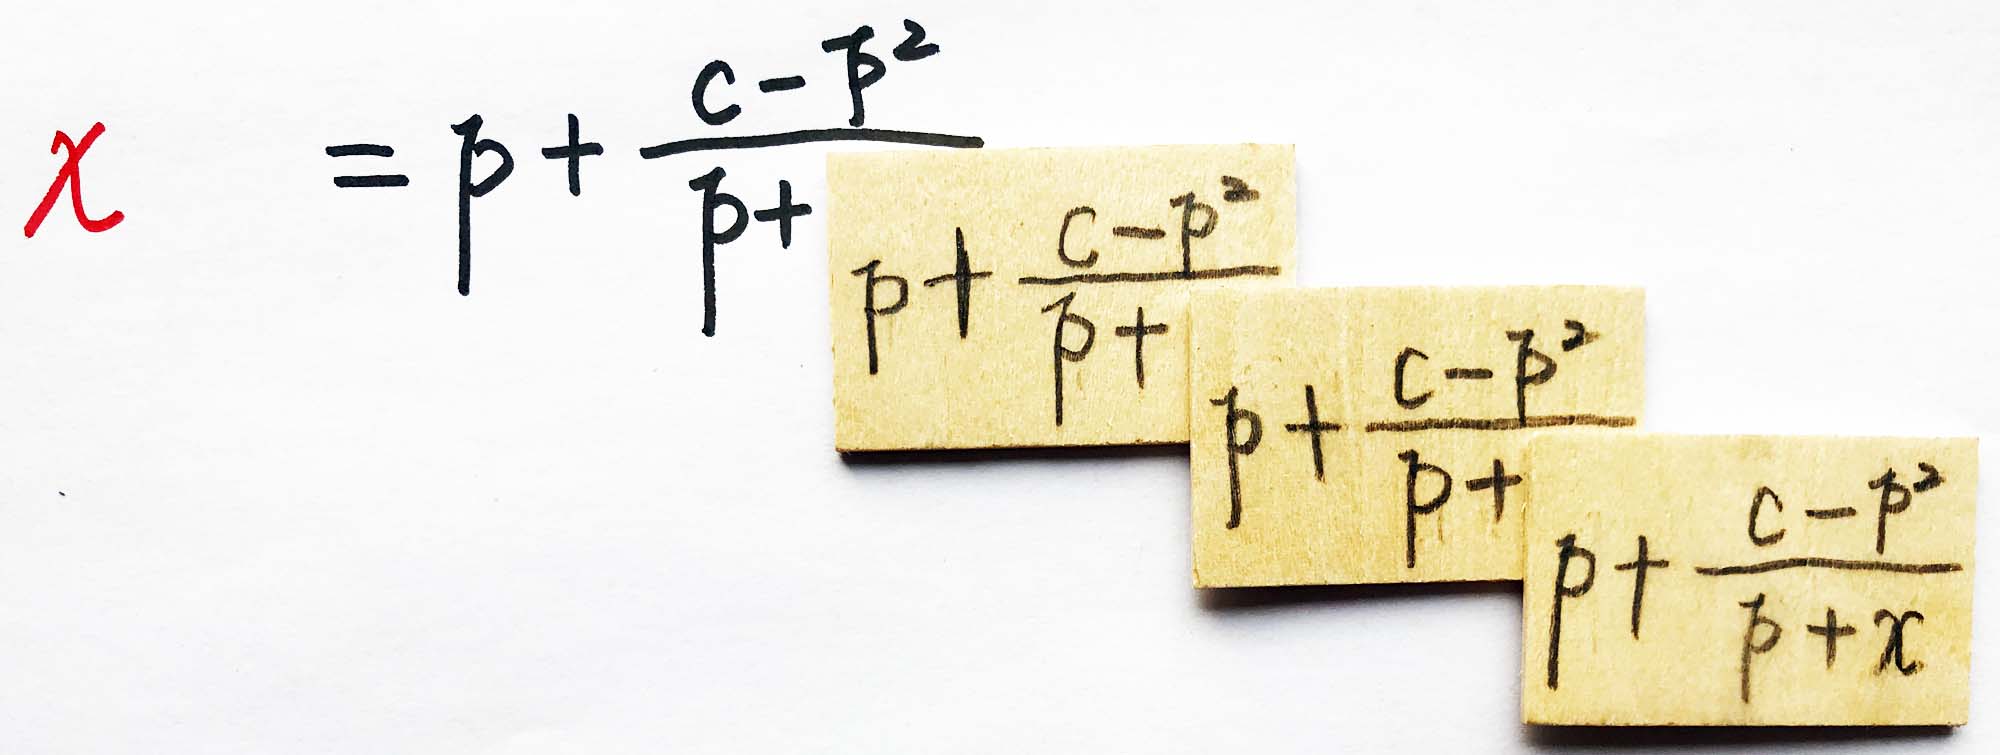 x = p + c - p²
p +
p + c - p²
p +
p + c - p²
p +
p + c - p²
p + x